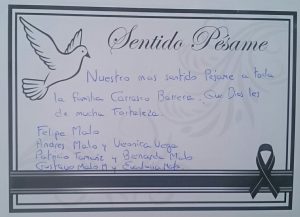 Sentido Pésame
Nuestro mas sentido Pésame a toda
la familia Carrasco Barrera. Que Dios les
de mucha Fortaleza.
Felipe Malo
Andres Malo y Veronica Vega
Patricio Tamariz y Bernarda Malo
Gustavo Malo M y Eudalia Malo